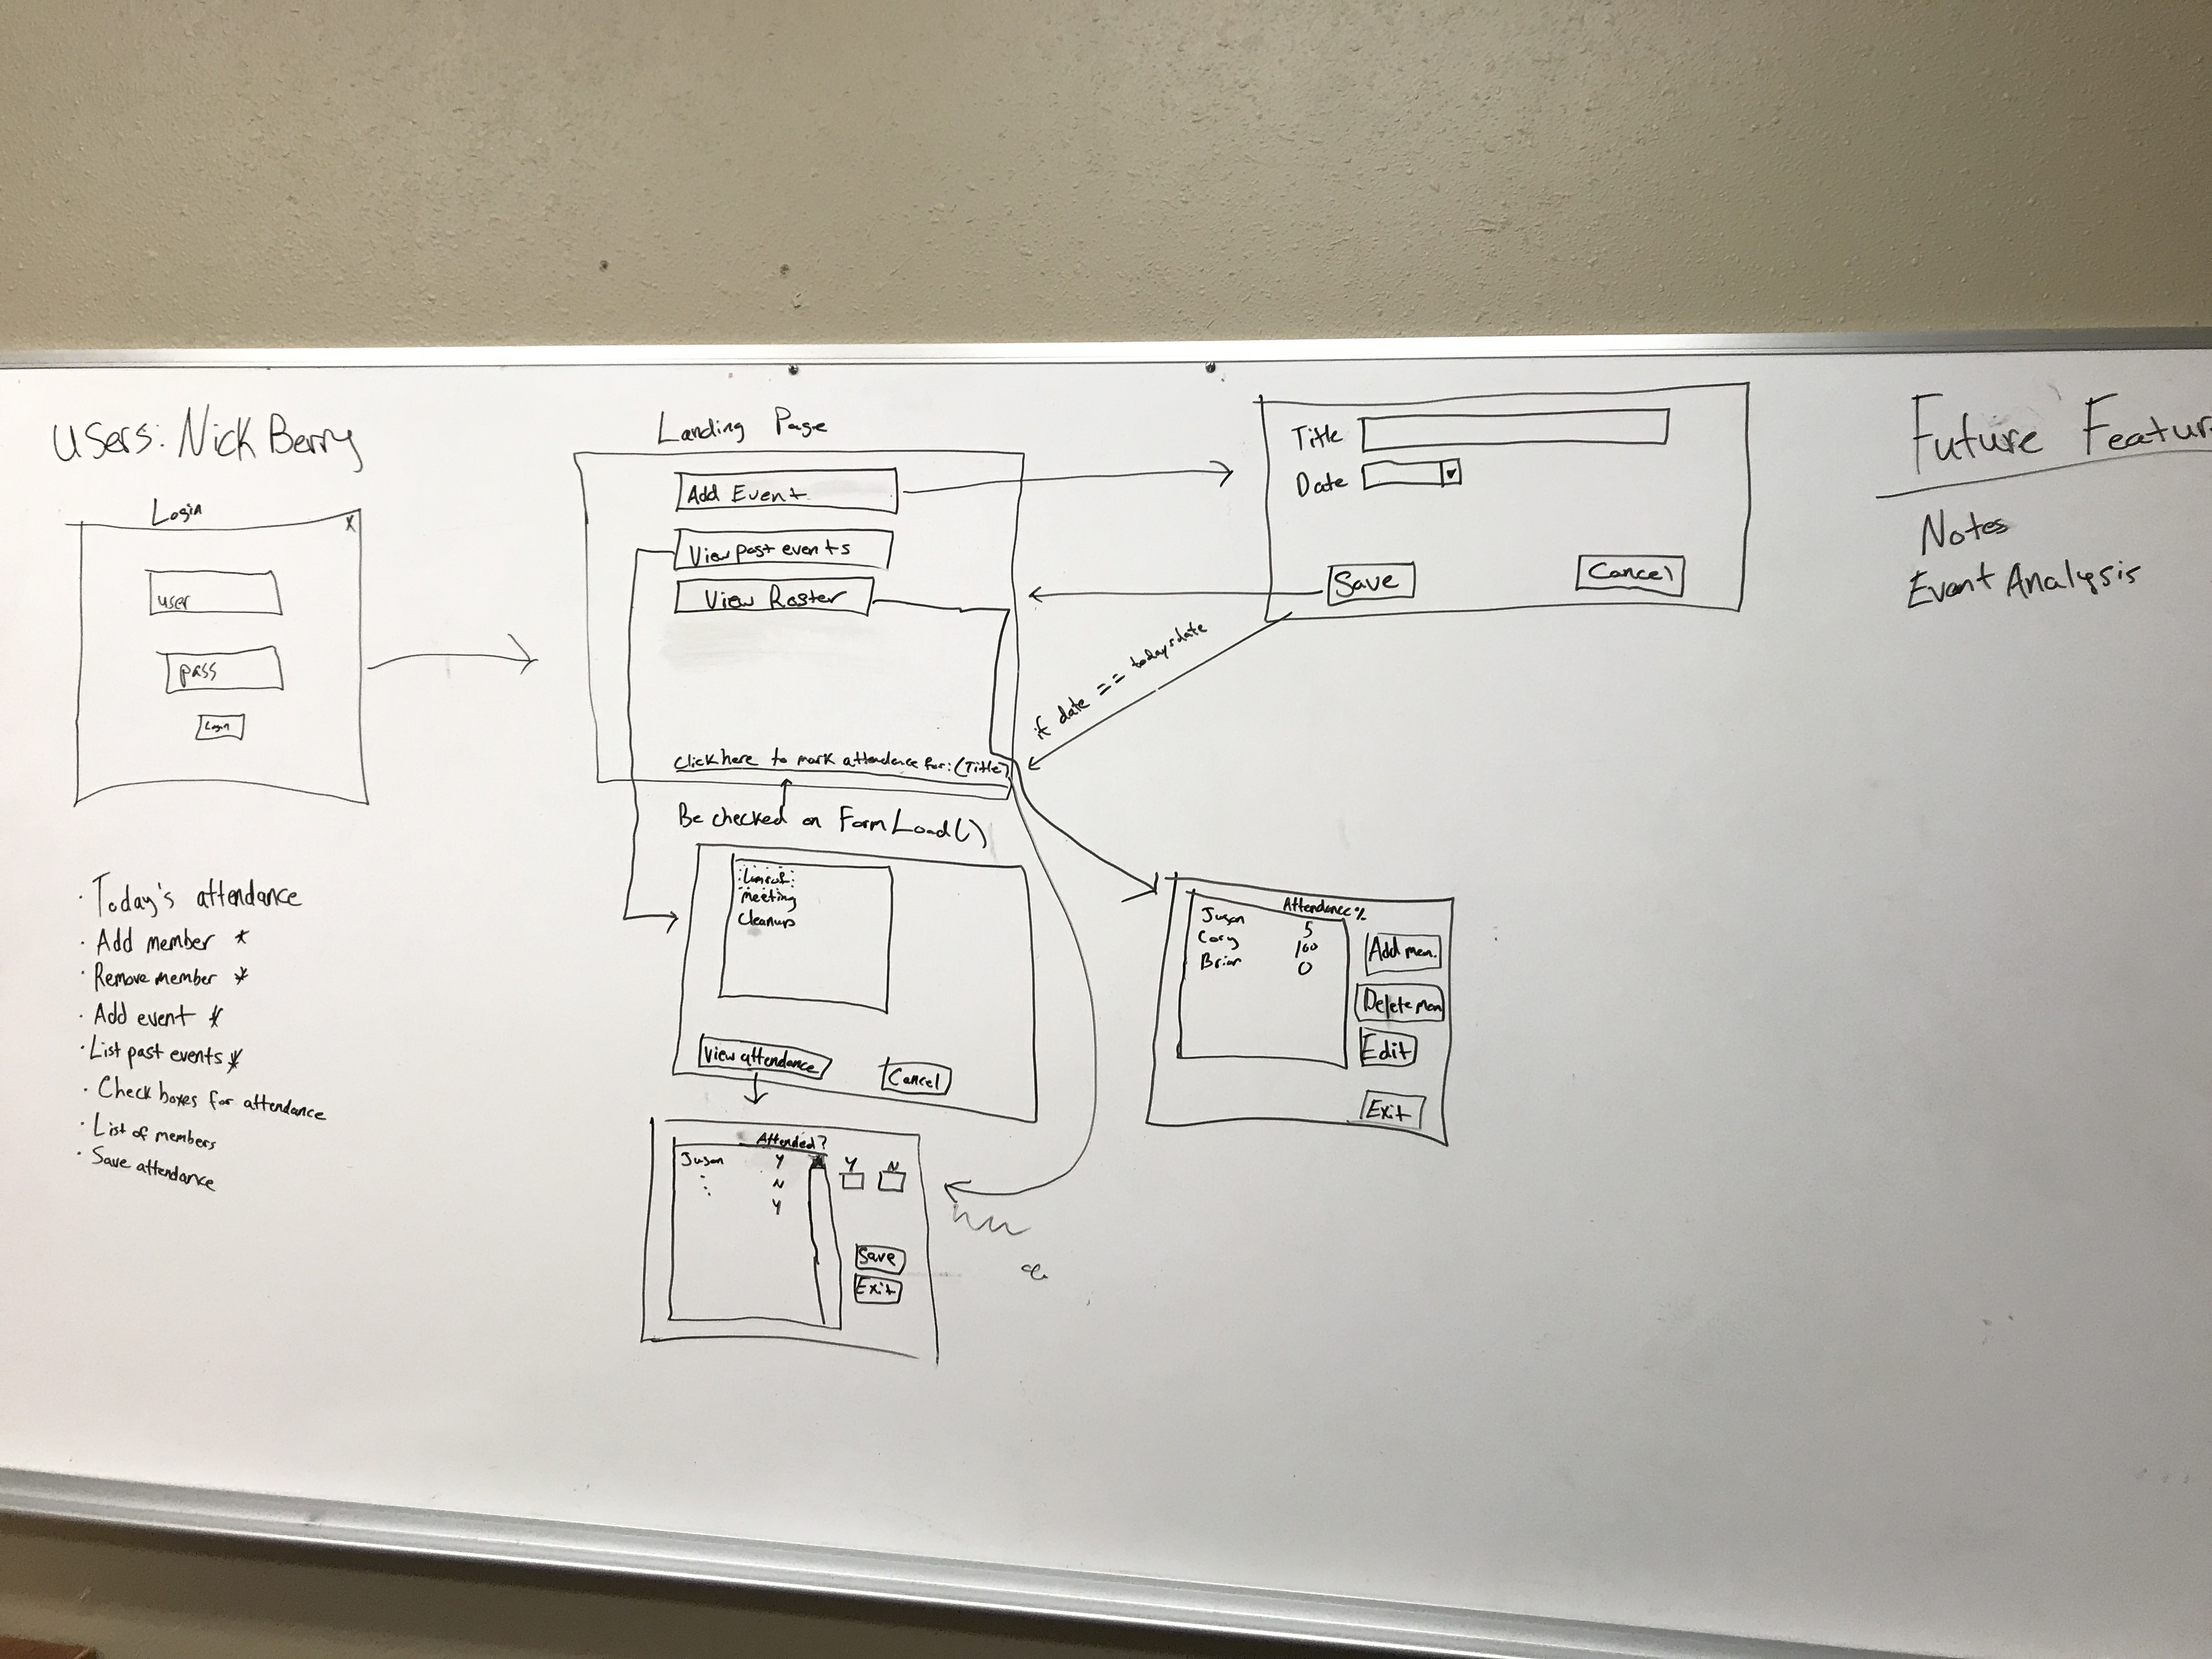 Users: Nick Berry
Login
X
user
pass
Login
· Today's attendance
· Add member *
· Remove member *
· Add event *
· List past events *
· Check boxes for attendance
· List of members
· Save attendance
Landing Page
Add Event
View past events
View Roster
Click here to mark attendance for: (Title)
Be checked on Form Load()
meeting
Cleanup
View attendance
Cancel
Attended?
Juson Y
N
Y
Y N
Save
Exit
Title
Date
Save
Cancel
if date == todays date
Attendance %
Juson 5
Cory 100
Brian 0
Add mem.
Delete mem
Edit
Exit
Future Featur
Notes
Event Analysis